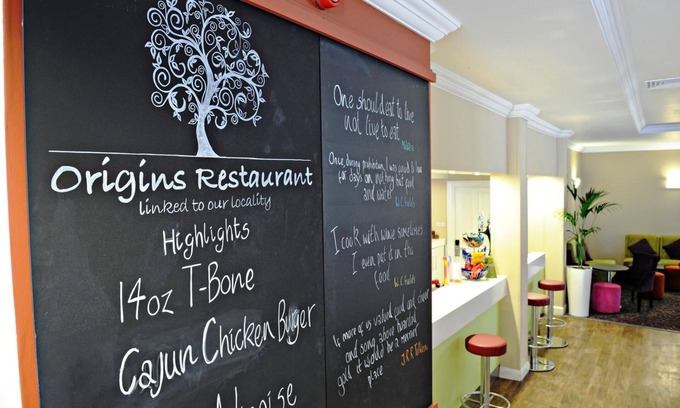 Origins Restaurant
linked to our locality
Highlights
14oz T-Bone
Cajun Chicken Burger
One should eat to live
not live to eat
Moliere
Once, during prohibition, I was forced to live
for days on nothing but food
and water
W.C. Fields
I cook with wine sometimes
I even put it in the
food
W.C. Fields
If more of us valued food and cheer
and song above hoarded
gold it would be a merrier
place
J.R.R Tolkien